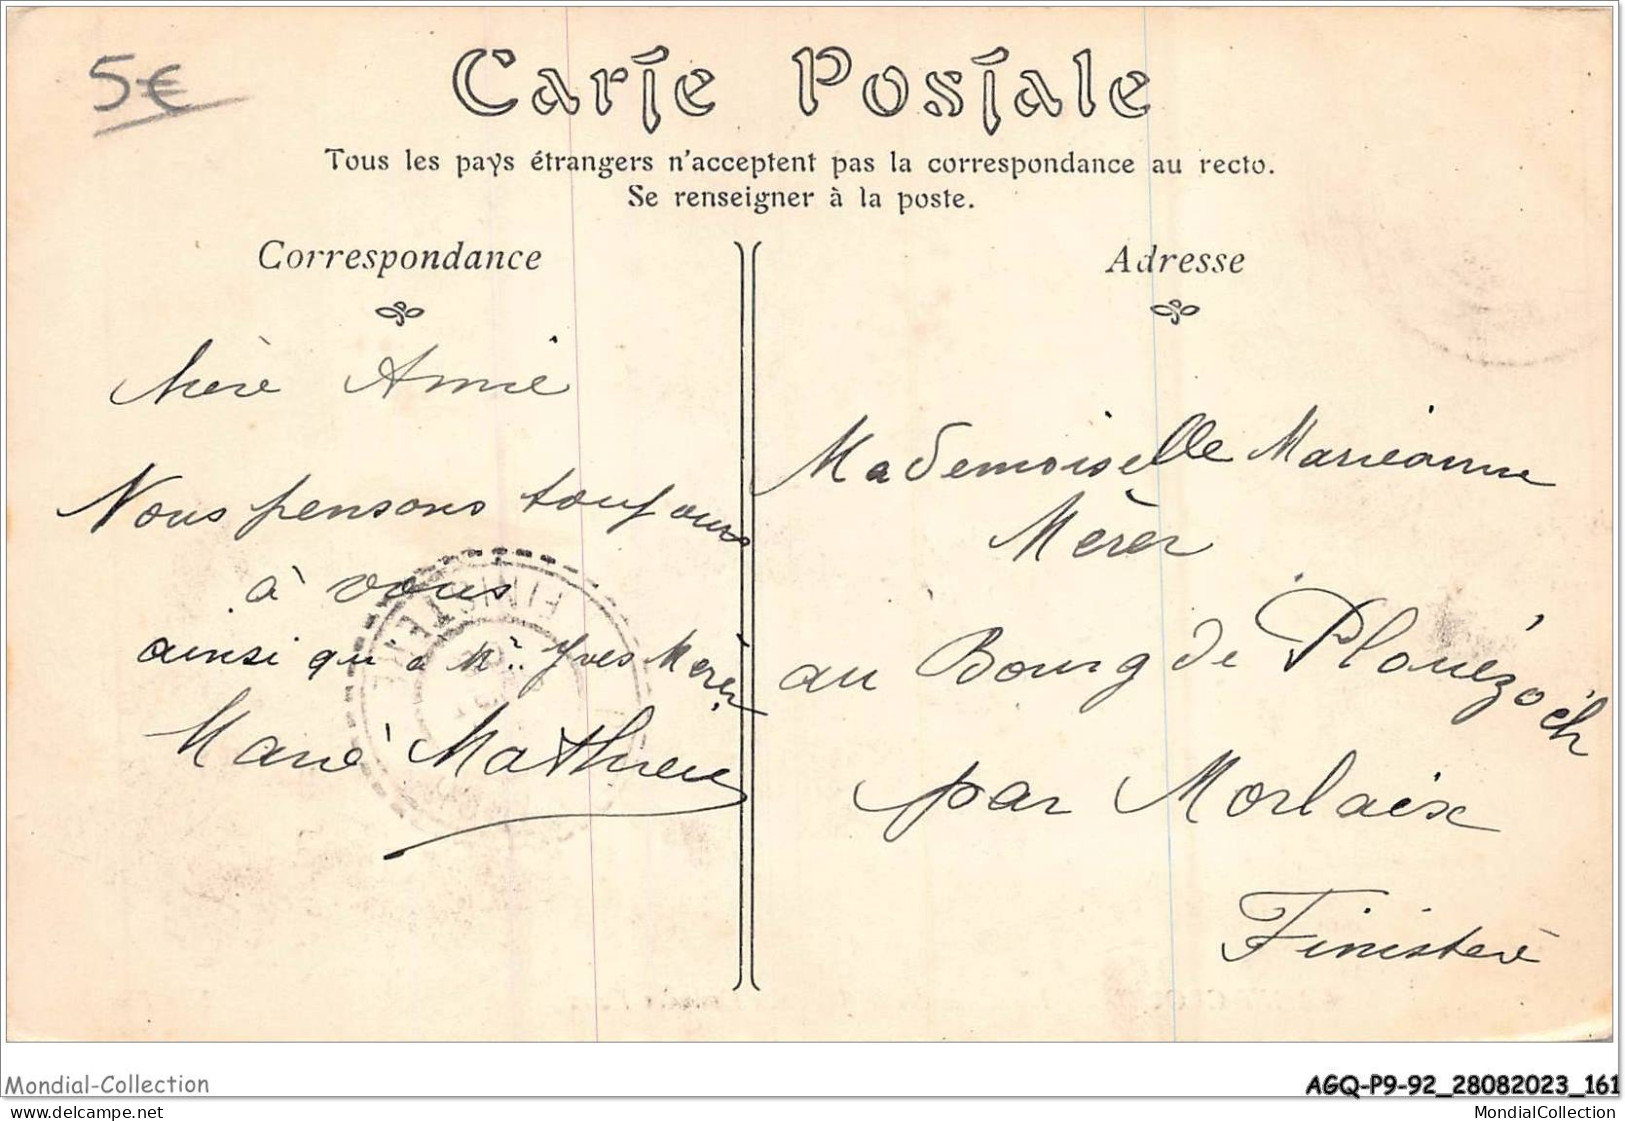 5€
Carte Postale
Tous les pays étrangers n'acceptent pas la correspondance au recto.
Se renseigner à la poste.
Correspondance
Chère Amie
Nous pensons toujours
à vous
ainsi qu'à Mr Yves Mérer
Marie Mathieu
FINISTERE
Adresse
Mademoiselle Marieanne
Mérer
au Bourg de Plouézoch
par Morlaix
Finistère
Mondial-Collection
AGQ-P9-92_28082023_161
MondialCollection.com
MondialCollection